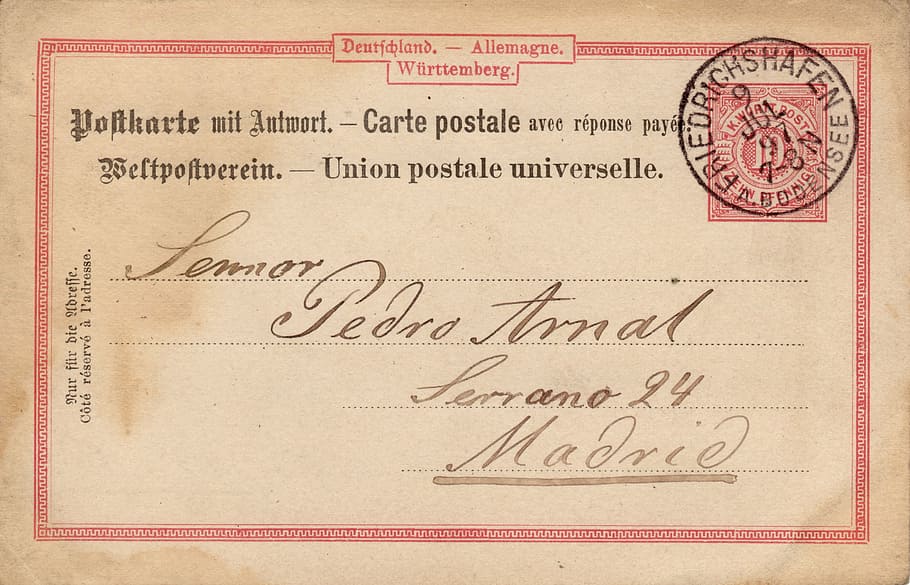 Deutschland. — Allemagne.
Württemberg.
Postkarte mit Antwort. — Carte postale avec réponse payée
Weltpostverein. — Union postale universelle.
FRIEDRICHSHAFEN
9
JUL
91
7-8 N
A.BODENSEE
K.WÜRTT.POST
10
ZEHN PFENNIG
Nur für die Adresse.
Côté réservé à l'adresse.
Sennor
Pedro Arnal
Serrano 24
Madrid